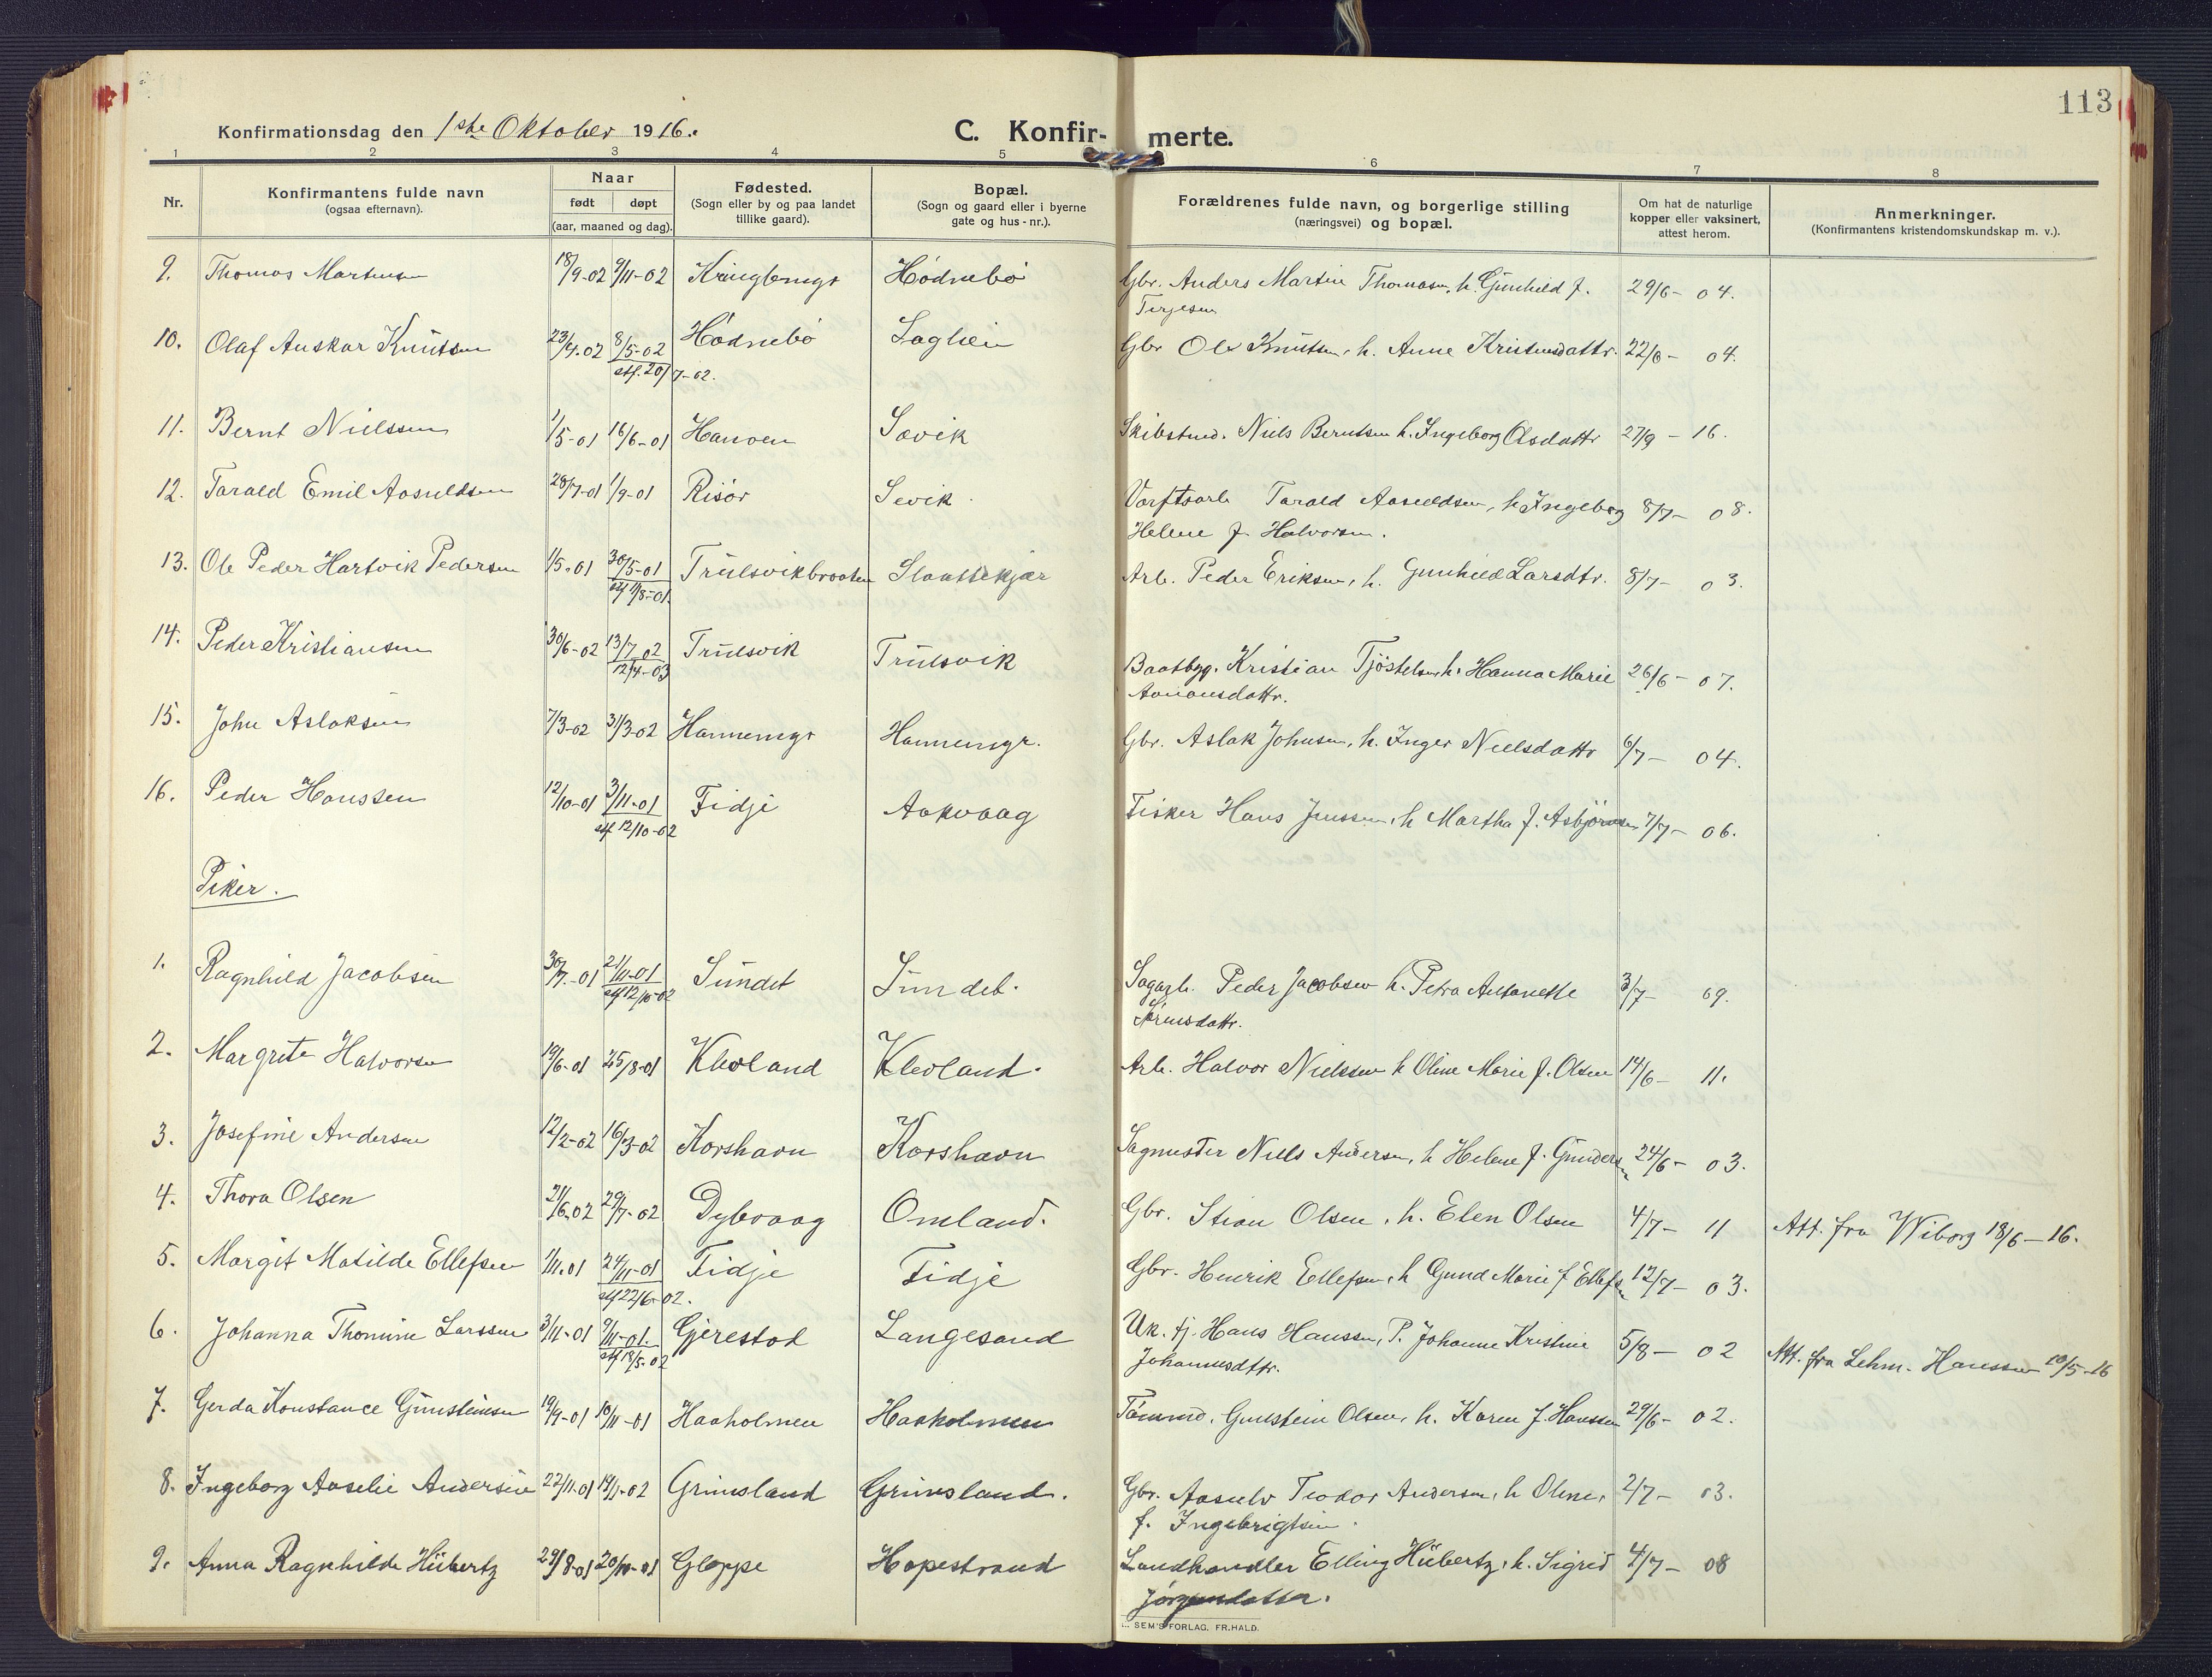 113
Konfirmationsdag den 1ste Oktober 1916.
C. Konfir- merte.
1 2 3 4 5 6 7 8
Nr.
Konfirmantens fulde navn
(ogsaa efternavn).
Naar
født døpt
(aar, maaned og dag).
Fødested.
(Sogn eller by og paa landet
tillike gaard).
Bopæl.
(Sogn og gaard eller i byerne
gate og hus-nr.).
Forældrenes fulde navn, og borgerlige stilling
(næringsvei) og bopæl.
Om hat de naturlige
kopper eller vaksinert,
attest herom.
Anmerkninger.
(Konfirmantens kristendomskundskap m. v.).
9. Thomas Martinsen 18/9-02 9/11-02 Hødnebø Gbr. Anders Martin Thomasn, h. Gunhild f. 29/6- 04.
Terjesen
10. Olaf Anskar Knutsen 23/4-02 8/5-02 Hødnebø Laglien Gbr Ole Knutsen, h. Anne Kristensdattr. 22/6- 04.
stf. 20/7-02.
11. Bernt Nielssen 1/5-01 16/6-01 Sævik Skibstmd. Niels Berntsen h. Ingeborg Olsdattr 27/9-16.
12. Tarald Emil Aasuldsen 28/7-01 1/9-01 Risør Sevik Værftsarb Tarald Aasuldsen, h Ingeborg 8/7- 08.
Helene f. Halvorsen.
13. Ole Peder Hartvik Pedersen 1/5-01 30/5-01 Trulsvikbraaten Slaattekjær Arb. Peder Eriksen, h. Gunhild Larsdtr. 8/7- 03.
stf 11/8-01.
14. Peder Kristiansen 30/6-02 13/7 02 Trulsvik Trulsvik Baatbyg. Kristian Tjøstelsen, h. Hanna Marie 26/6-07.
12/4-03 Aanonsdattr.
15. John Aslaksen 7/3-02 31/3-02 Hannemyr Hannemyr. Gbr. Aslak Johnsen, h. Inger Nielsdattr 6/7- 04.
16. Peder Hanssen 12/10-01 3/11-01 Fidje Aakvaag Fisker Hans Jenssen, h Martha f. Asbjørnsen 7/7- 06.
stf 12/10-02
Piker.
1. Ragnhild Jacobsen 30/7-01 21/11-01 Sundet Sundet. Sagarb. Peder Jacobsen h. Petra Antonette 3/7- 09.
stf 12/10-02 Sørensdattr.
2. Margrete Halvorsen 19/6-01 25/8-01 Kleoland Kleoland. Arb. Halvor Nielssen h Oline Marie f. Olsen 14/6- 11.
3. Josefine Andersen 12/2-02 16/3-02 Korshavn Korshavn Sagmester Niels Andersen, h Helene f. Gundersn 24/6- 03.
4. Thora Olsen 21/6-02 29/7-02 Dybvaag Omland. Gbr. Stian Olsen, h. Elen Olsen 4/7- 11 Att. fra Wiborg 18/6-16.
5. Margit Matilde Ellefsen 1/11-01 24/11-01 Fidje Fidje Gbr. Henrik Ellefsen, h Gund Marie f Ellefsn 12/7- 03.
stf 22/6-02.
6. Johanna Thomine Larssen 3/11-01 9/11-01. Gjerestad Langesand Uk. tj. Hans Hanssen, P. Johanne Kristine 5/8- 02 Att. fra Lehm. Hanssen 10/5-16
stf 18/5-02 Johannesdttr.
7. Gerda Konstance Gunsteinsen 19/9-01 10/11-01 Haaholmen Haaholmen Tømmd. Gunstein Olsen, h. Karen f. Hanssen 29/6- 02.
8. Ingeborg Aaselie Andersen 22/11-01 19/1-02 Grimsland Grimsland. Gbr. Aasulv Teodor Andersen, h Oline, 2/7- 03.
f. Ingebrigtsen.
9. Anna Ragnhilde Hübertz 29/8-01 20/10-01 Gloppe Hopestrand Landhandler Elling Hübertz, h. Sigrid 4/7- 08
Jørgensdatter.
SEM'S FORLAG. FR.HALD.